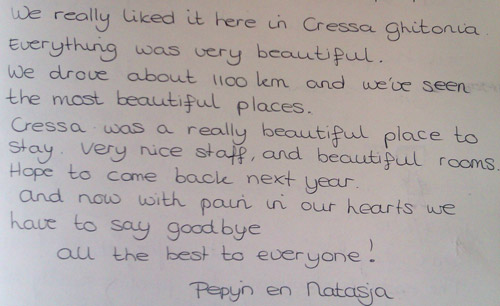 We really liked it here in Cressa ghitonia.
Everything was very beautiful.
We drove about 1100 km and we've seen
the most beautiful places.
Cressa was a really beautiful place to
stay. Very nice staff, and beautiful rooms.
Hope to come back next year.
and now with pain in our hearts we
have to say goodbye
all the best to everyone!
Pepijn en Natasja